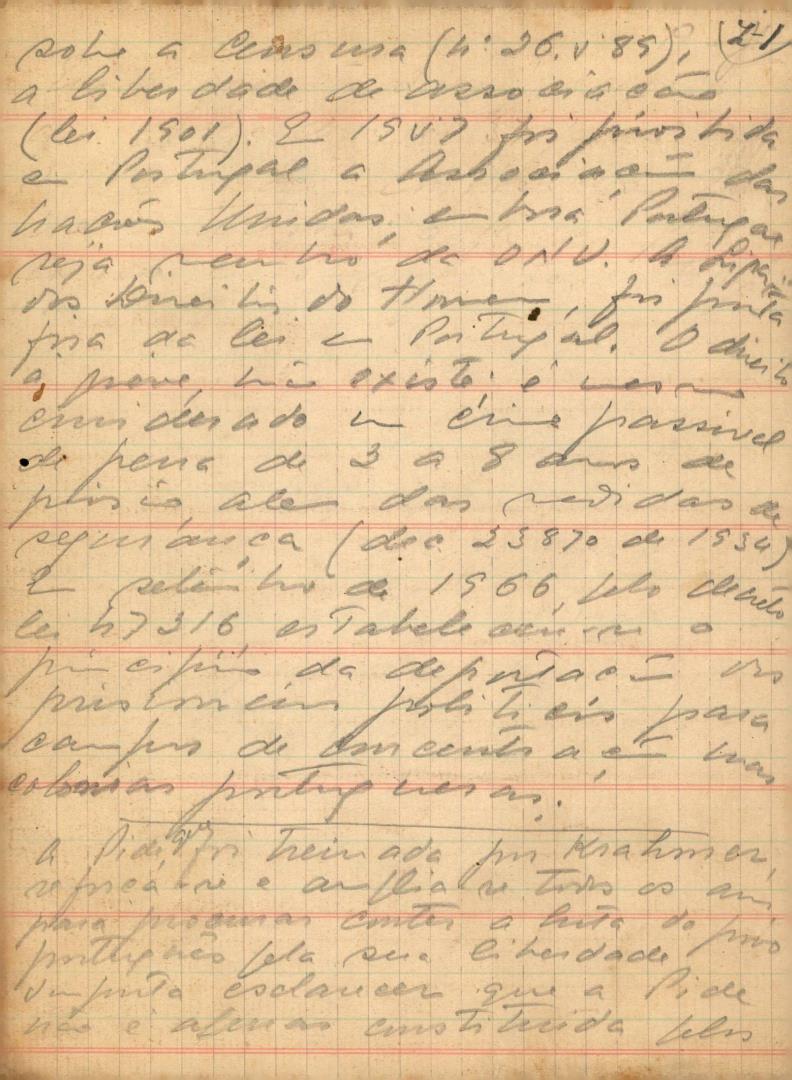 sobre a censura (nº 26.v.89), (Z-1)
a liberdade de associação
(lei 1901). Em 1947 foi proibida
em Portugal a Associação das
nações Unidas, embora Portugal
seja membro da ONU. A Liga
dos Direitos do Homem, foi posta
fora da lei em Portugal. O direito
à greve, não existe: é mesmo
considerado um crime passivel
de pena de 3 a 8 anos de
prisão, alem das medidas de
segurança (dec 23870 de 1934)
Em setembro de 1966, pelo decreto
lei 47316 estabeleceu-se o
principio da deportação dos
prisioneiros politicos para
campos de concentração nas
colonias portuguesas.
A Pide, que foi treinada por Krahmer,
reforça-se e amplia-se todos os anos
para procurar conter a luta do povo
português pela sua liberdade
Importa esclarecer que a Pide
não é apenas constituida pelos